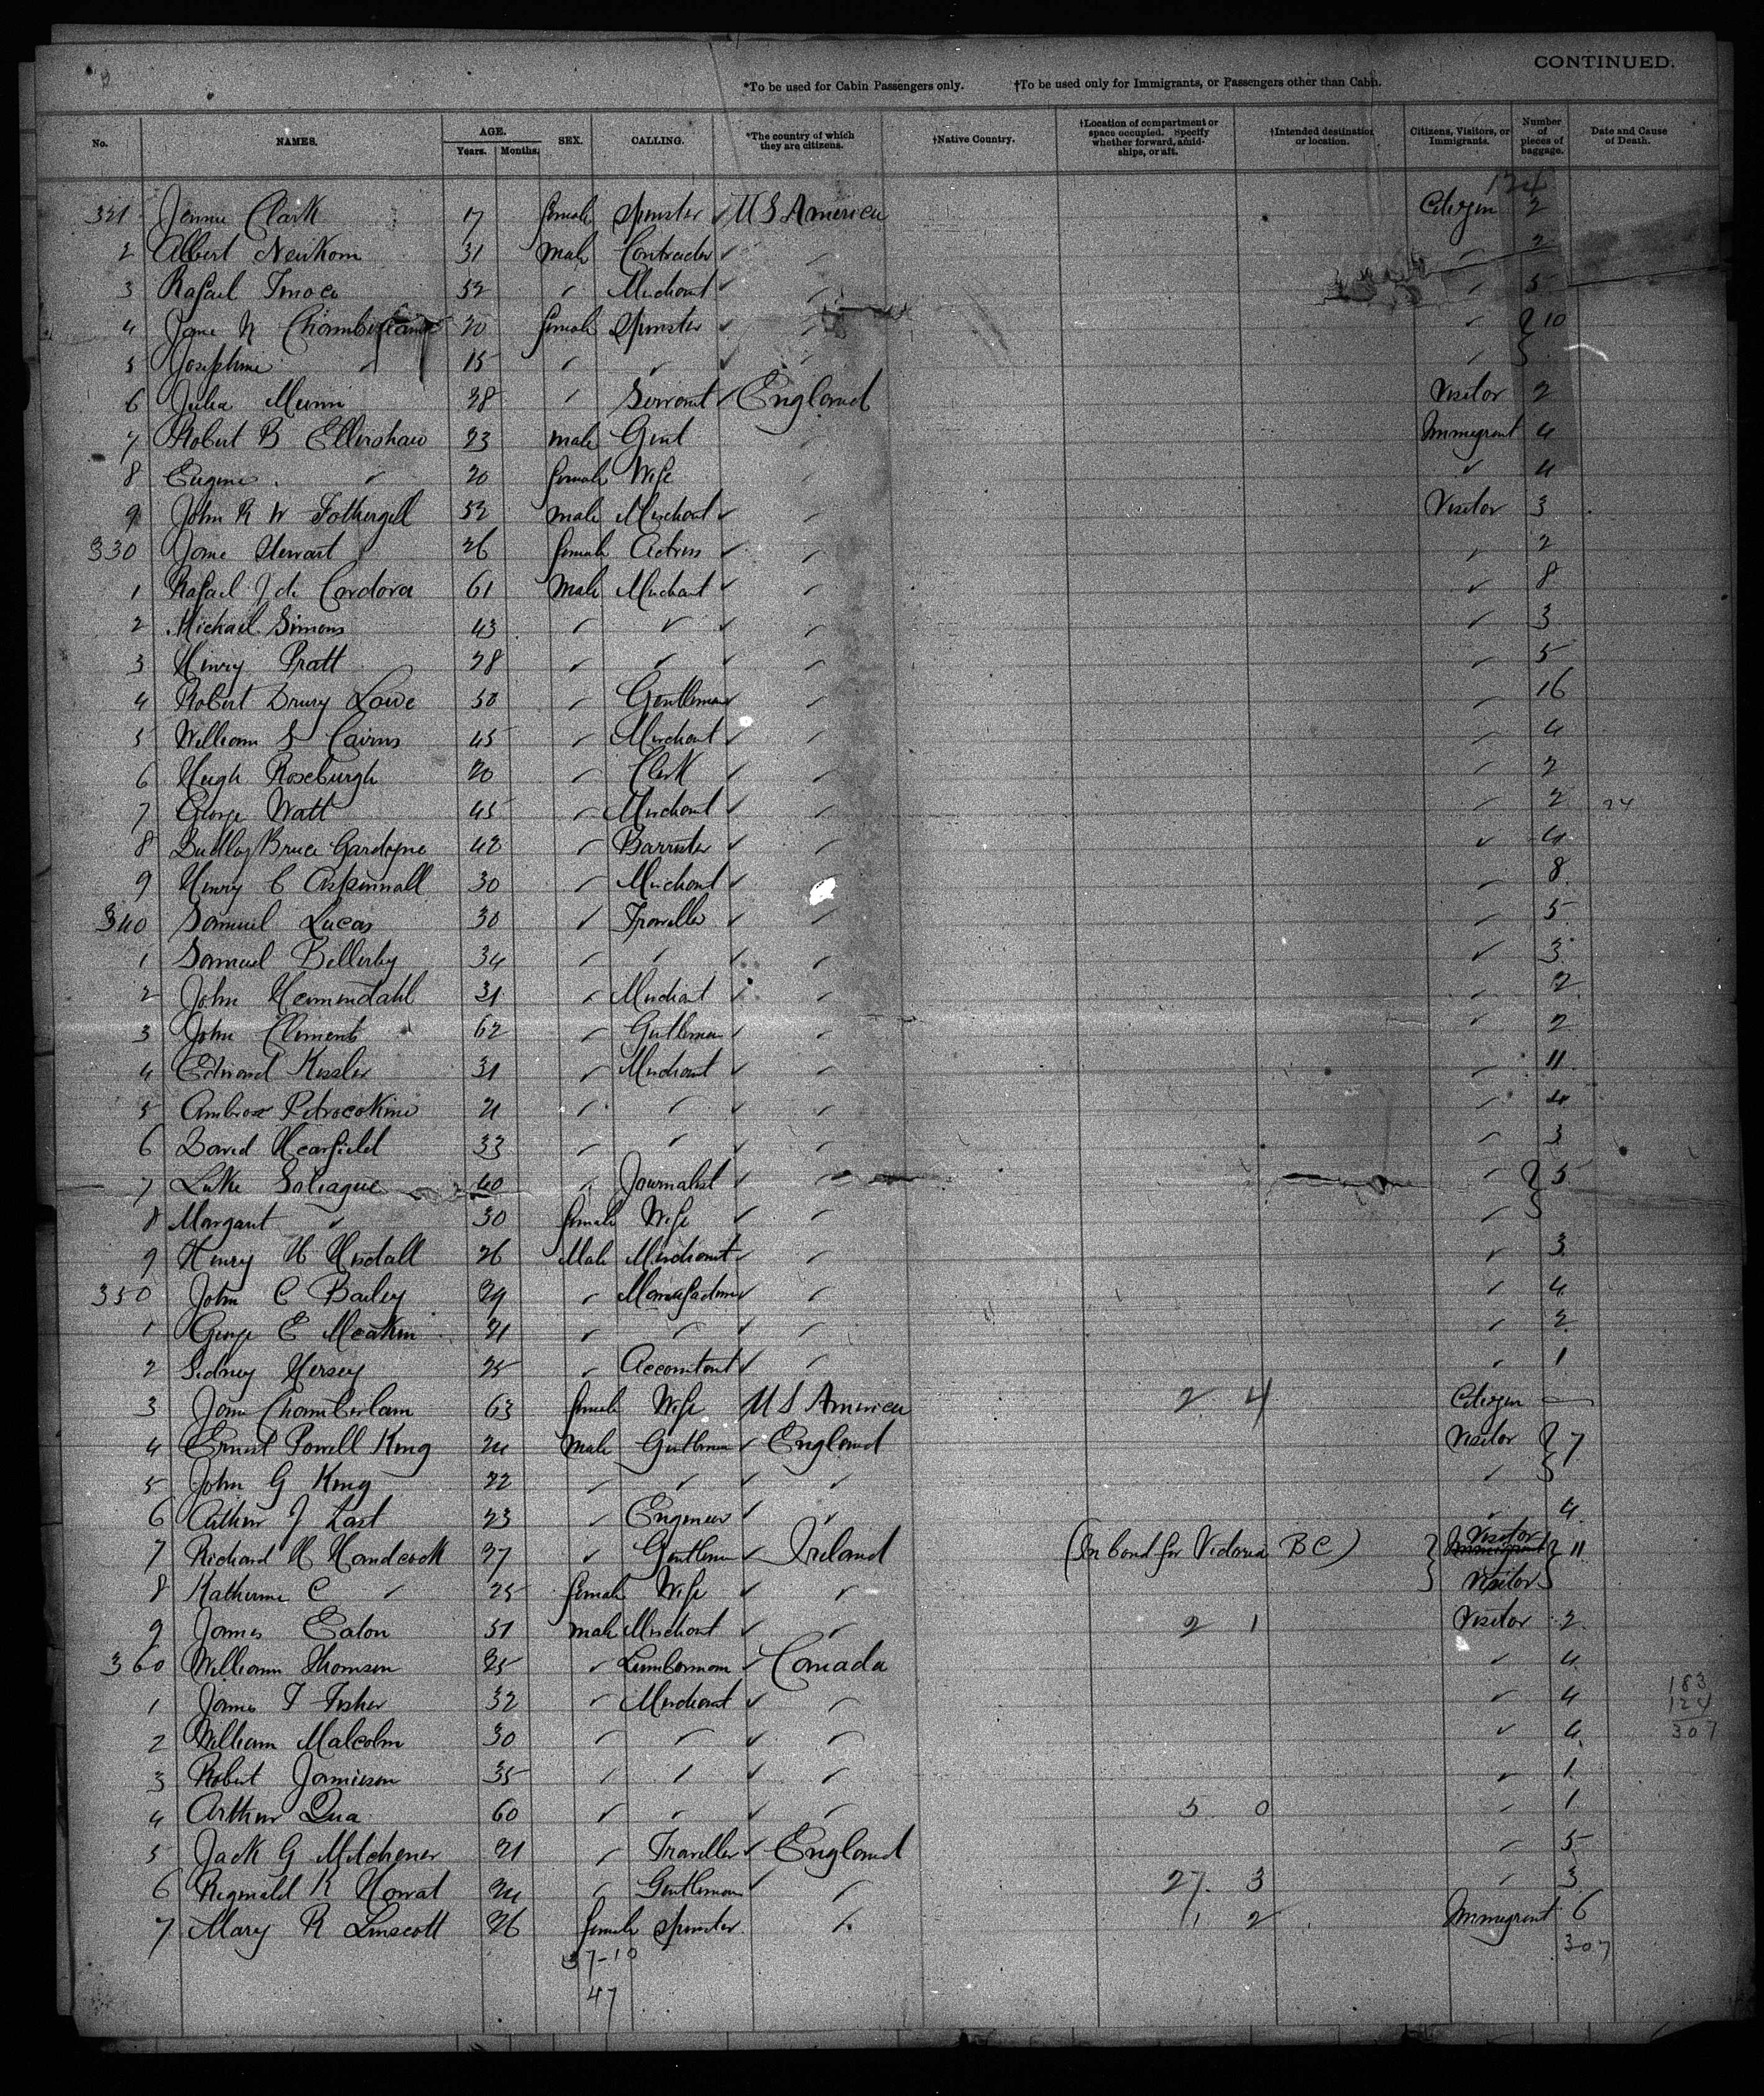 CONTINUED.
*To be used for Cabin Passengers only. †To be used only for Immigrants, or Passengers other than Cabin.
No. NAMES. AGE. Years. Months. SEX. CALLING. *The country of which they are citizens. †Native Country. †Location of compartment or space occupied. Specify whether forward, amidships, or aft. †Intended destination or location. Citizens, Visitors, or Immigrants. Number of pieces of baggage. Date and Cause of Death.
124
321 Jennie Clark 17 female Spinster ✓ U S America Citizen 2
2 Albert Newkom 31 male Contractor ✓ 2
3 Rafael Tinoco 52 Merchant ✓ 5
4 Jane N Chamberlain 20 female Spinster ✓ } 10
5 Josephine 15 ✓
6 Julia Munn 28 Servant ✓ England Visitor 2
7 Robert B Ellershaw 23 male Gent Immigrant 4
8 20 female Wife ✓ 4
9 John R W Fothergill 52 male Merchant ✓ Visitor 3
330 Jane Stewart 26 female Actress ✓ 2
1 Rafael J de Cordova 61 male Merchant ✓ 8
2 Michael Simons 43 ✓ 3
3 Henry Pratt 28 ✓ 5
4 Robert Drury Lowe 50 Gentleman ✓ 16
5 William S Cairns 45 Merchant ✓ 4
6 Hugh Roseburgh 20 Clerk ✓ 2
7 George Watt 45 Merchant ✓ 2 24
8 Dudley Bruce Gardyne 42 Barrister ✓ 4
9 Henry C Aspinnall 30 Merchant ✓ 8
340 Samuel Lucas 30 Traveller ✓ 5
1 Samuel Bellerby 34 ✓ 3
2 John Hemmendahl 31 Merchant ✓ 2
3 John Clements 62 Gentleman ✓ 2
4 Edward Kessler 31 Merchant ✓ 11
5 Ambrose Petrocokino 21 ✓ 4
6 David Hearfield 33 ✓ 3
7 Luke 40 Journalist ✓ } 5
8 Margaret ✓ 30 female Wife ✓
9 Henry H 26 Male Merchant ✓ 3
350 John C Bailey 29 Manufacturer ✓ 4
1 George E Meakin 21 ✓ 2
2 Sidney Hersey 25 Accountant ✓ 1
3 Jane Chamberlain 63 female Wife U S America 2 4 Citizen —
4 Ernest Powell King 24 Male Gentleman ✓ England Visitor } 7
5 John G King 22 ✓
6 Arthur J Last 23 Engineer ✓ 4
7 Richard H Handcock 37 Gentleman ✓ Ireland (In bond for Victoria BC) Visitor Immigrant } 11
8 Katherine C ✓ 25 female Wife ✓ Visitor
9 James Eaton 51 male Merchant ✓ 2 1 Visitor 2
360 William Thomson 25 Lumberman ✓ Canada 4
1 James T Fisher 32 Merchant ✓ 4 183
124
2 William Malcolm 30 ✓ 4 307
3 Robert Jamieson 35 ✓ 1
4 Arthur Qua 60 ✓ 5 0 1
5 Jack G Mitchener 21 Traveller ✓ England 5
6 Reginald K Howat 24 Gentleman ✓ 27 3 3
7 Mary R Linscott 26 female Spinster 1 2 Immigrant 6
37-10 307
47